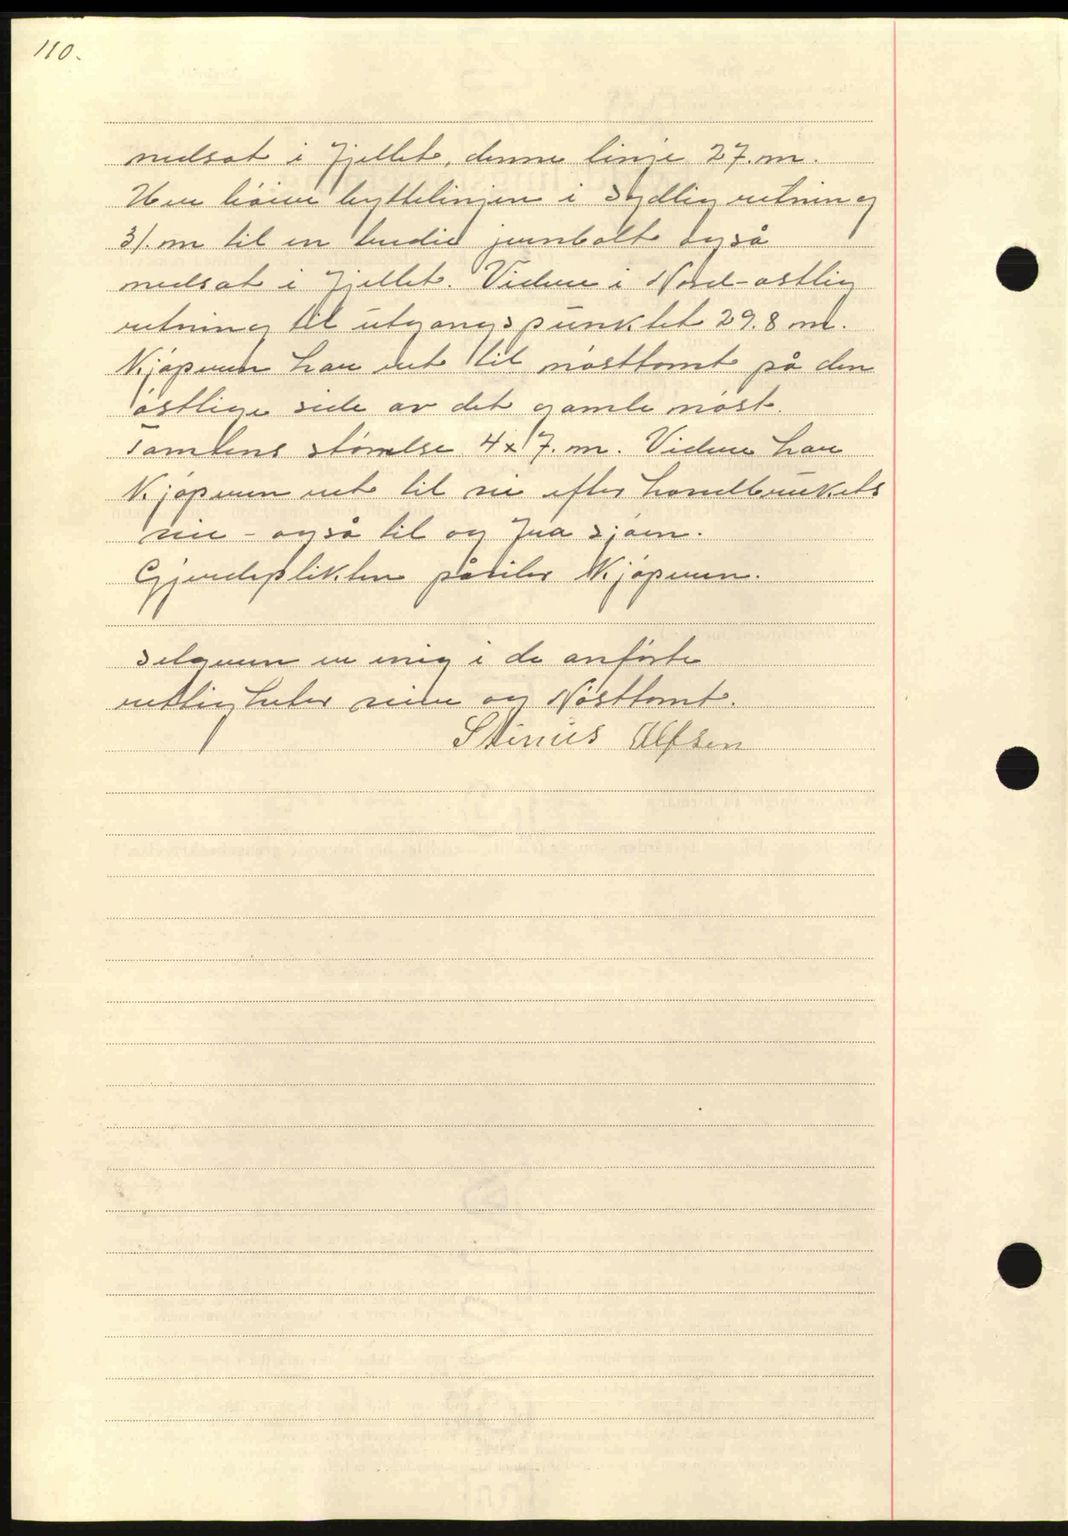 110.
nedsat i fjellet, denne linje 27. m.
Her bøier byttelinjen i sydlig retning
31. m til en tredie jernbolt også
nedsat i fjellet. Videre i Nord-østlig
retning til utgangspunktet 29.8 m.
Kjøperen har ret til nøsttomt på den
østlige side av det gamle nøst.
Tomtens størrelse 4x7. m. Videre har
Kjøperen ret til vei efter hovedbrukets
vei - også til og fra sjøen.
Gjerdeplikten påhviler Kjøperen.
Selgeren er enig i de anførte
rettigheter veien og Nøsttomt.
Stinius Ulfsen